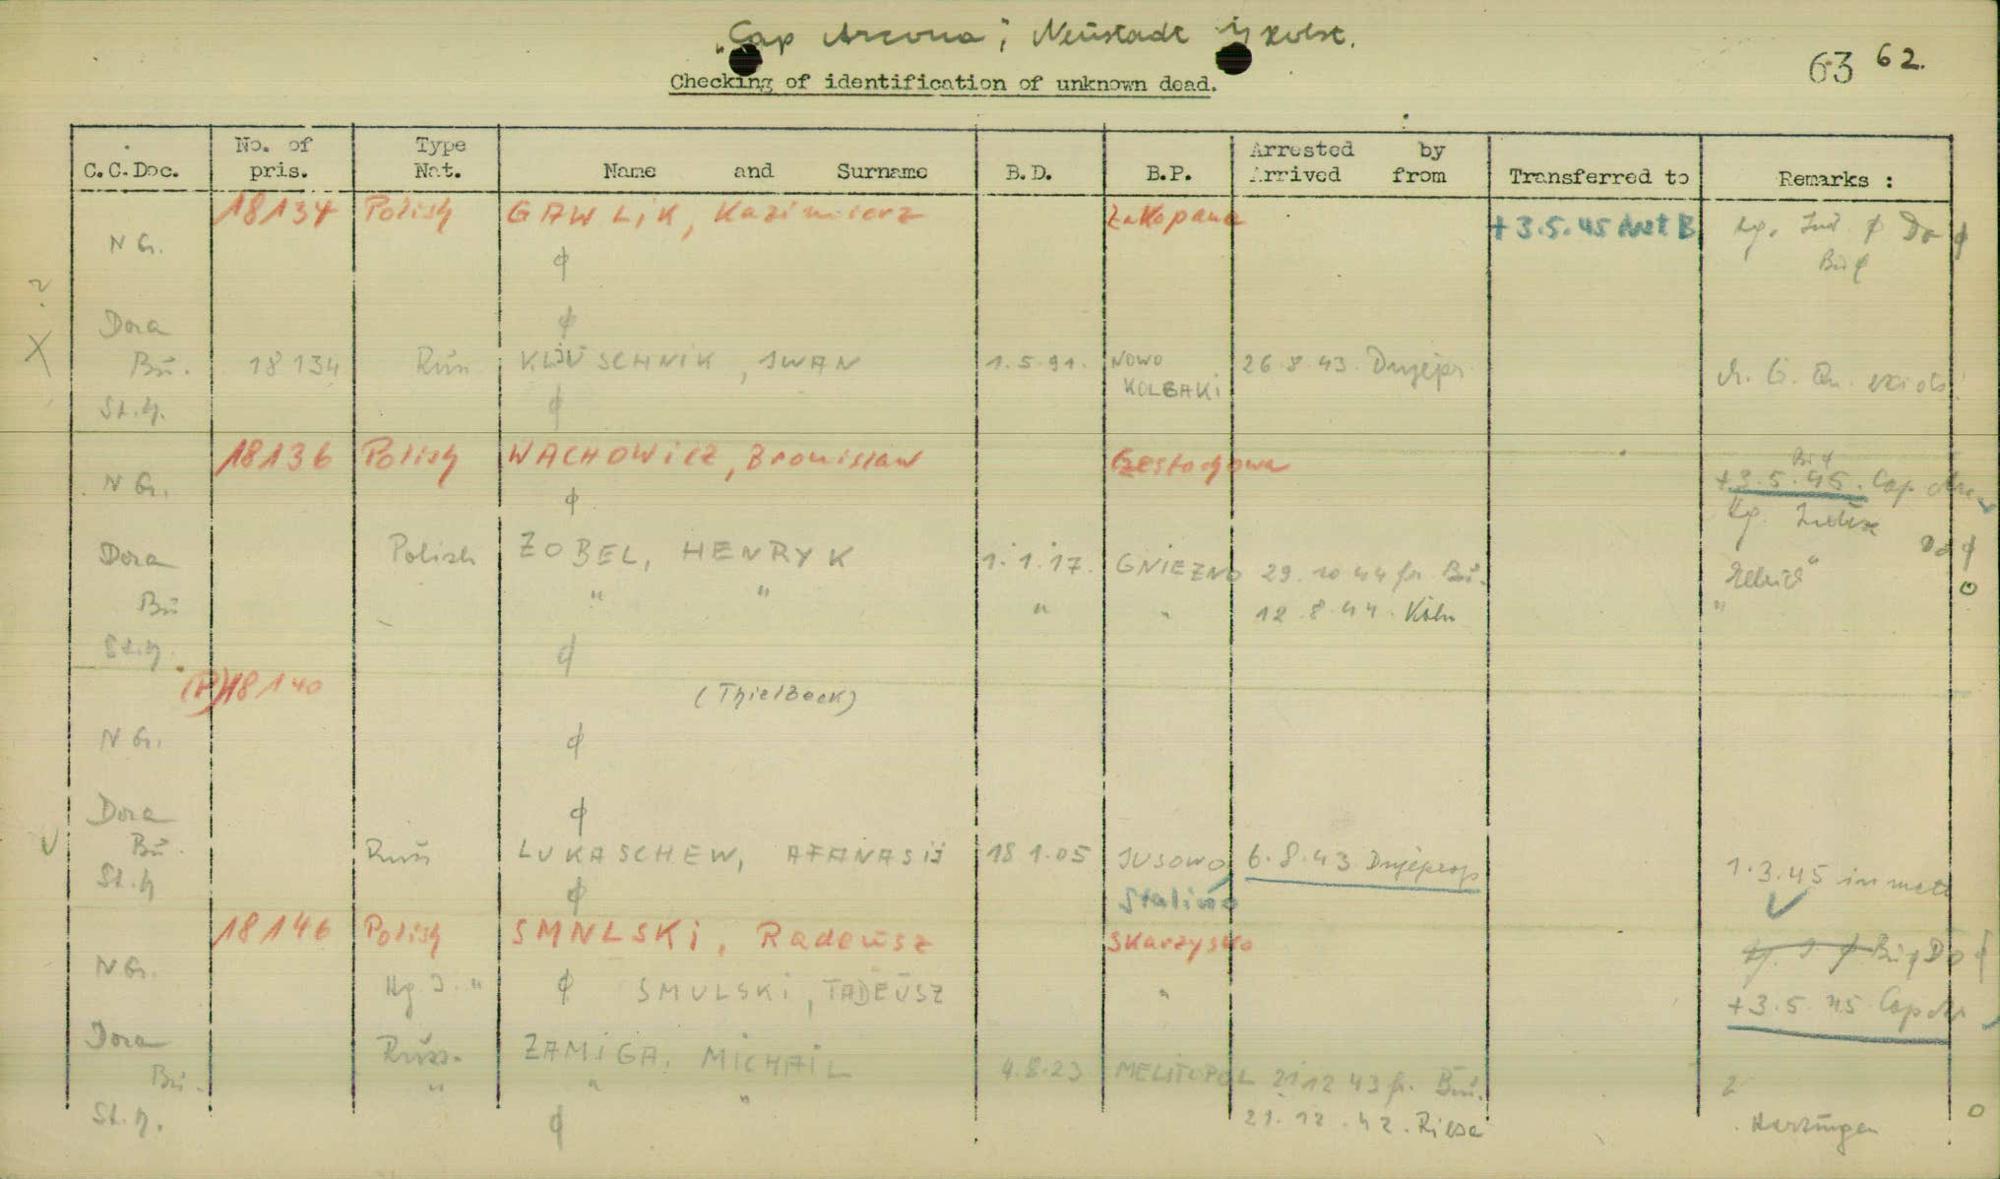 "Cap Arcona", Neustadt i/Holst.
63 62.
Checking of identification of unknown dead.
C.C.Doc. No. of pris. Type Nat. Name and Surname B.D. B.P. Arrested by Arrived from Transferred to Remarks :
18134 Polish GAWLIK, Kazimierz Zakopane + 3.5.45 B
N G. ϕ Hg. Ind. ϕ Do ϕ
Bu ϕ
?
Dora ϕ
X Bu. 18134 Russ KLUSCHNIK, IWAN 1.5.91. NOWO KOLBAKI 26.8.43. Dnjepr.
St.H. ϕ
18136 Polish WACHOWicz, Bronislaw Czestochowa
Bu ϕ
N G. ϕ + 3.5.45. Cap
Hg. Index
Do ϕ
Dora Polish ZOBEL, HENRYK 1.1.17. GNIEZNO 29.10.44 fr. Bu. "Ellrich" o
Bu " " " " 12.8.44. Köln "
St.H. ϕ
(P)18140 (Thielbeck)
N G. ϕ
Dora ϕ
v Bu. Russ LUKASCHEW, AFANASIJ 18.1.05 JUSOWO 6.8.43 Dnjeprop 1.3.45
St.H ϕ Stalino
18146 Polish SMNLSKi, Radeusz Skarzysko
Bu ϕ Do ϕ
N G. Hg J. " ϕ SMULSKi, TADEUSZ " + 3.5.45 Cap Ar
Dora Russ. ZAMIGA, MICHAIL 4.8.23 MELITOPOL 21.12.43 fr. Bu.
Bu. " " " 21.12.42. Riesa
St.H. ϕ Harzungen o